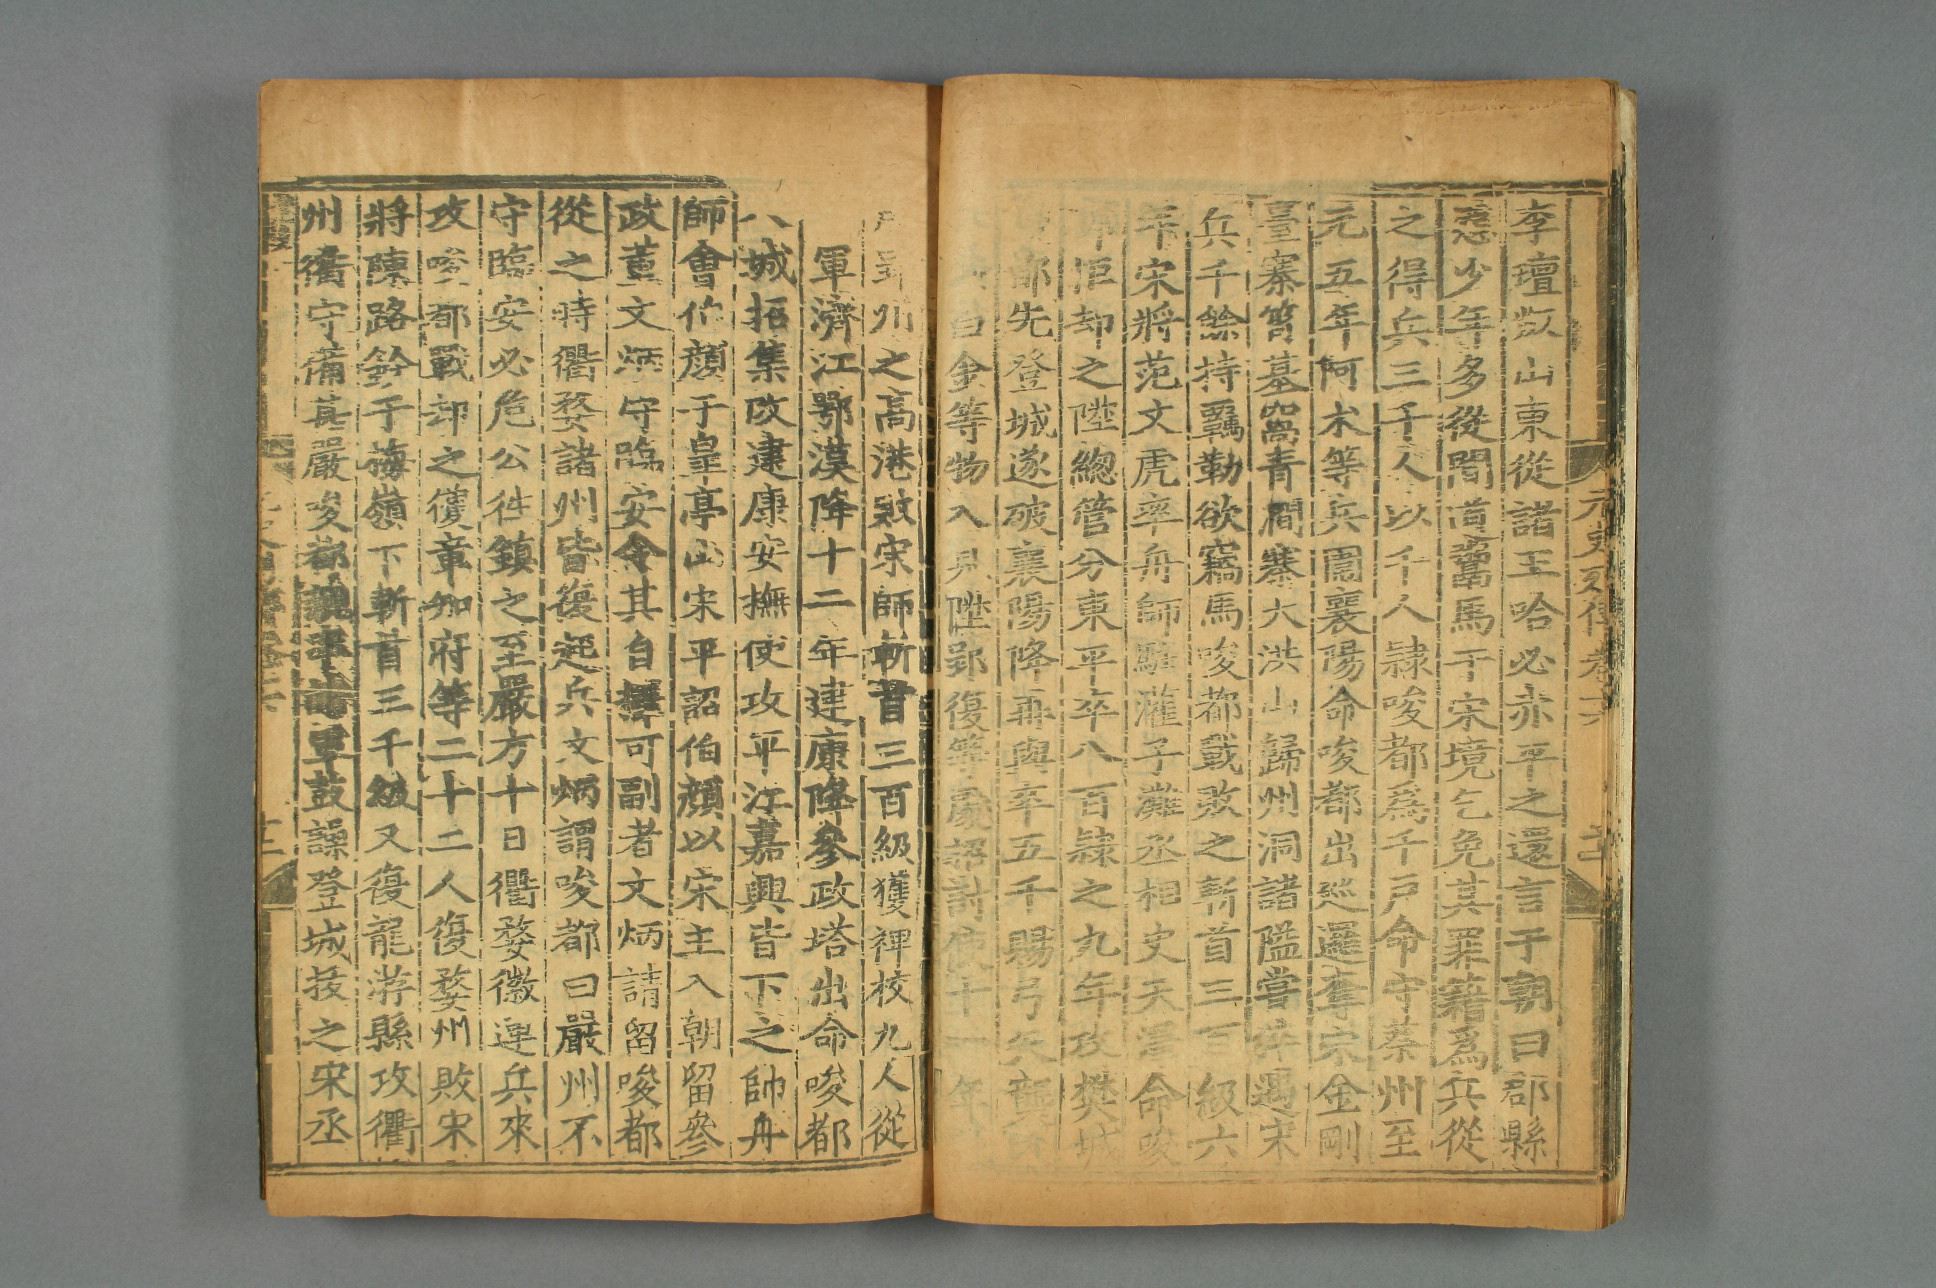 李璮叛山東從諸王哈必赤平之還言于朝曰郡縣
惡少年多從間道鬻馬于宋境乞免其罪籍爲兵從
之得兵三千人以千人隷唆都爲千戶命守蔡州至
元五年阿朮等兵圍襄陽命唆都出廵邏奪宗金剛
臺寨筲基窩青澗寨大洪山歸州洞諸隘嘗 遇宋
兵千餘持羈勒欲竊馬唆都戰敗之斬首三 級六
年宋將范文虎率舟師駐灌子灘丞相史天澤命唆
 拒却之陞總管分東平卒八百隷之九年攻樊城
 都先登城遂破襄陽降再與卒五千賜弓矢襲
 白金等物入見陞郢復等處招討使十一年
 郢州之高港敗宋師斬首三百級獲裨校九人從
軍濟江鄂漢降十二年建康降參政塔出命唆都
八城招集改建康安撫使攻平江嘉興皆下之帥舟
師會伯顏于皐亭山宋平詔伯顏以宋主入朝留參
政董文炳守臨安令其自擇可副者文炳請留唆都
從之時衢婺諸州皆復起兵文炳謂唆都曰嚴州不
守臨安必危公往鎮之至嚴方十日衢婺徽連兵來
攻唆都戰却之獲章知府等二十二人復婺州敗宋
將陳路鈐于梅嶺下斬首三千級又復龍游縣攻衢
州衢守備甚嚴唆都 鼓譟登城拔之宋丞
元史列傳卷十六